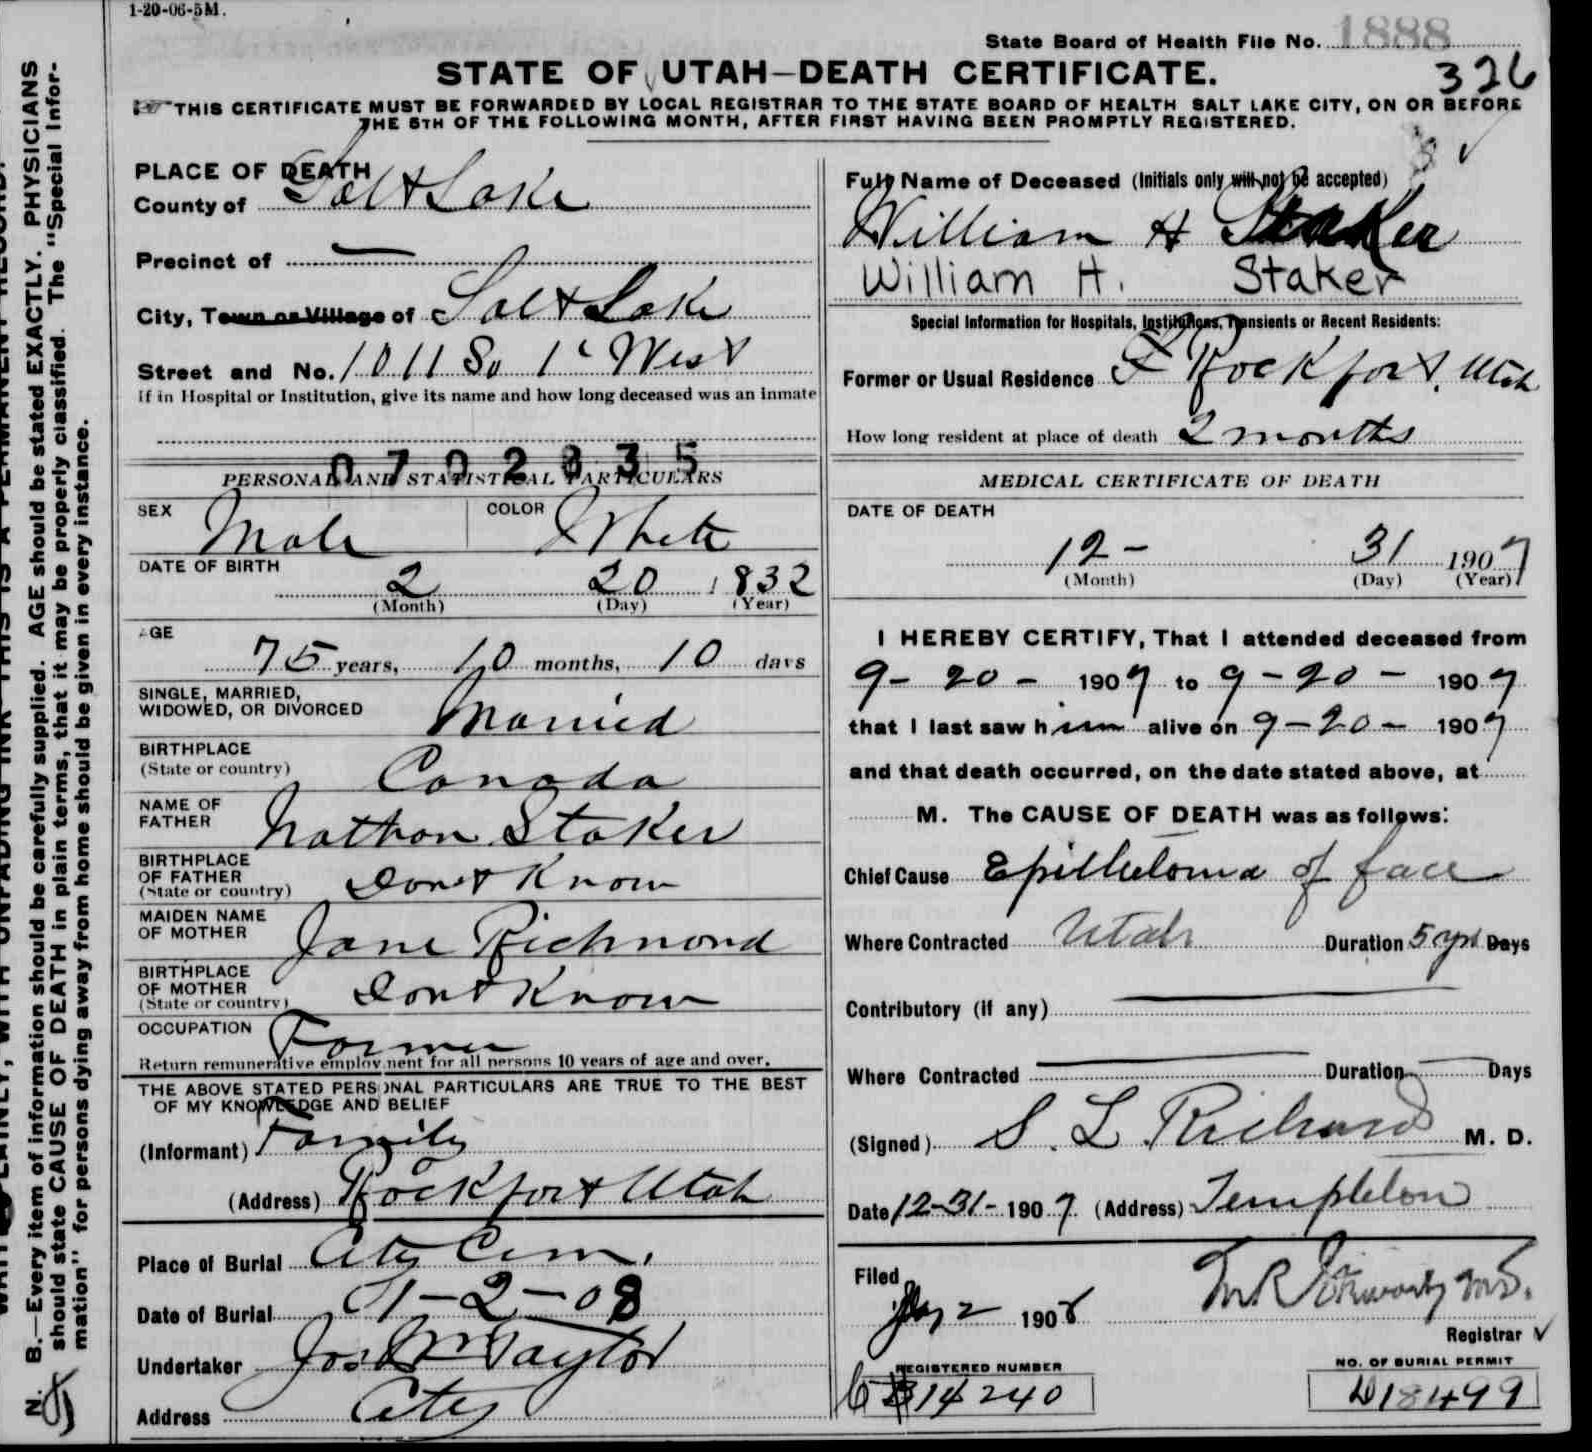 1-20-06-5M.
State Board of Health File No. 1888
326
STATE OF UTAH—DEATH CERTIFICATE.
THIS CERTIFICATE MUST BE FORWARDED BY LOCAL REGISTRAR TO THE STATE BOARD OF HEALTH SALT LAKE CITY, ON OR BEFORE
THE 5TH OF THE FOLLOWING MONTH, AFTER FIRST HAVING BEEN PROMPTLY REGISTERED.
PLACE OF DEATH
County of Salt Lake
Precinct of —
City, Town or Village of Salt Lake
Street and No. 1011 So 1st West
If in Hospital or Institution, give its name and how long deceased was an inmate
0702335
PERSONAL AND STATISTICAL PARTICULARS
SEX Male COLOR White
DATE OF BIRTH
2 20 1832
(Month) (Day) (Year)
AGE
75 years, 10 months, 10 days
SINGLE, MARRIED,
WIDOWED, OR DIVORCED Married
BIRTHPLACE
(State or country) Canada
NAME OF
FATHER Nathan Staker
BIRTHPLACE
OF FATHER
(State or country) Don't Know
MAIDEN NAME
OF MOTHER Jane Richmond
BIRTHPLACE
OF MOTHER
(State or country) Don't Know
OCCUPATION Farmer
Return remunerative employment for all persons 10 years of age and over.
THE ABOVE STATED PERSONAL PARTICULARS ARE TRUE TO THE BEST
OF MY KNOWLEDGE AND BELIEF
(Informant) Family
(Address) Rockport Utah
Place of Burial City Cem.
Date of Burial 1-2-08
Undertaker Jos Wm Taylor
Address City
Full Name of Deceased (Initials only will not be accepted)
William H Staker
William H. Staker
Special Information for Hospitals, Institutions, Transients or Recent Residents:
Former or Usual Residence Rockport, Utah
How long resident at place of death 2 months
MEDICAL CERTIFICATE OF DEATH
DATE OF DEATH
12 - 31 1907
(Month) (Day) (Year)
I HEREBY CERTIFY, That I attended deceased from
9 - 20 - 1907 to 9 - 20 - 1907
that I last saw him alive on 9-20- 1907
and that death occurred, on the date stated above, at
M. The CAUSE OF DEATH was as follows:
Chief Cause Epithelioma of face
Where Contracted Utah Duration 5 yrs Days
Contributory (if any) —
Where Contracted — Duration — Days
(Signed) S. L Richards M. D.
Date 12-31- 1907 (Address) Templeton
Filed
Jany 2 1908
Registrar
REGISTERED NUMBER
14240
NO. OF BURIAL PERMIT
D18499
N. B.—Every item of information should be carefully supplied. AGE should be stated EXACTLY. PHYSICIANS
should state CAUSE OF DEATH in plain terms, that it may be properly classified. The "Special Infor-
mation" for persons dying away from home should be given in every instance.